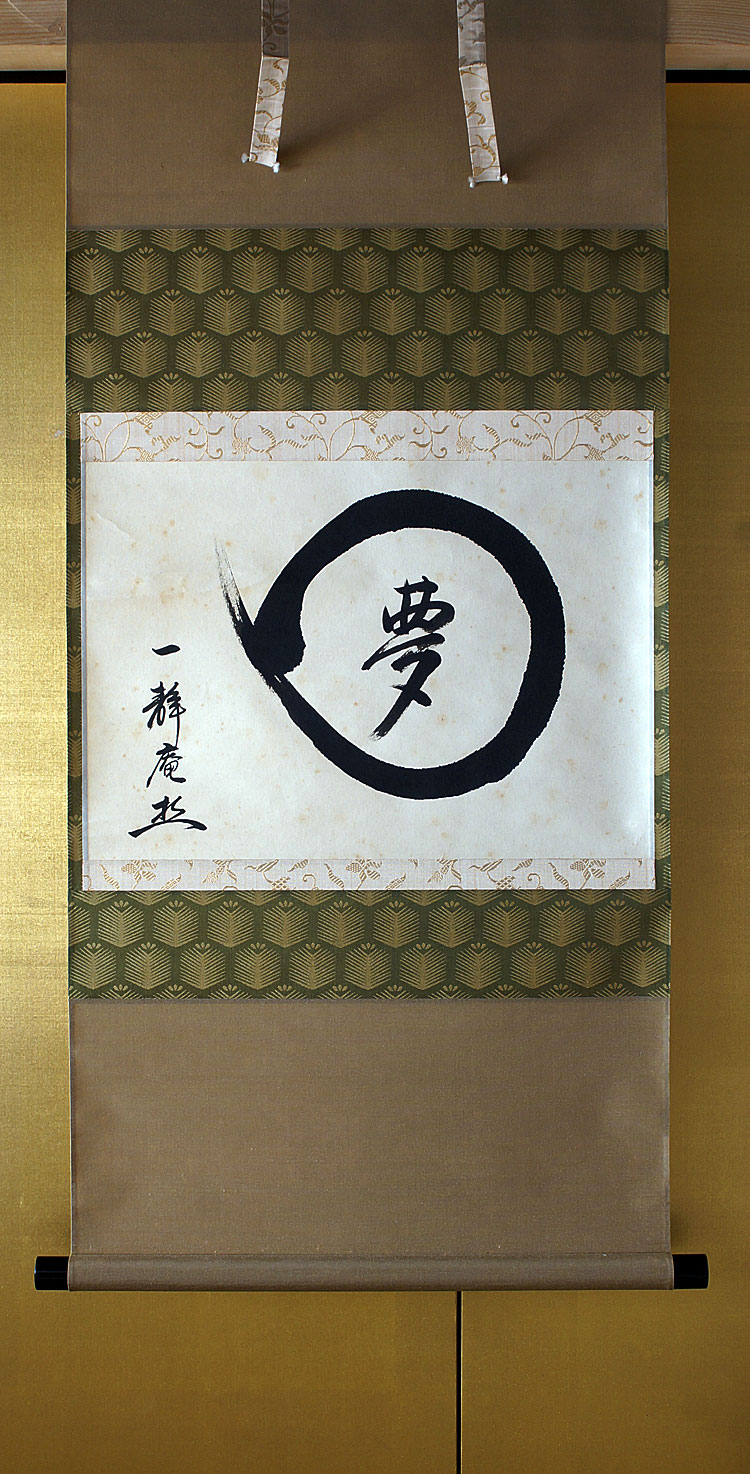 夢
一静庵